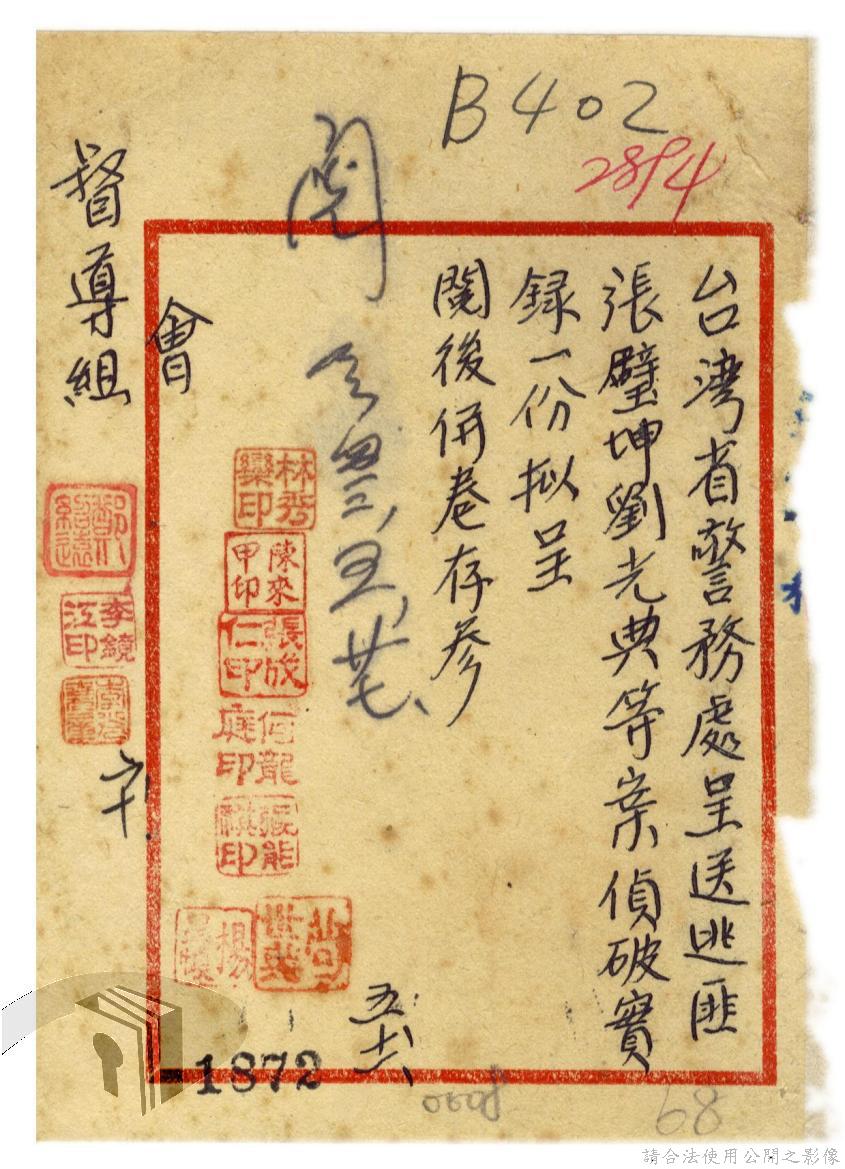 B402
2894
台湾省警務處呈送逃匪
張璧坤劉光典等案偵破實
録一份拟呈
閱後併卷存参
閱
五、廿七、
林秀欒印
陳來甲印
張成仁印
何龍庭印
張能祺印
五、十六、
會
督導組
鄧紹遠
李鏡江印
1872
0008
68
請合法使用公開之影像